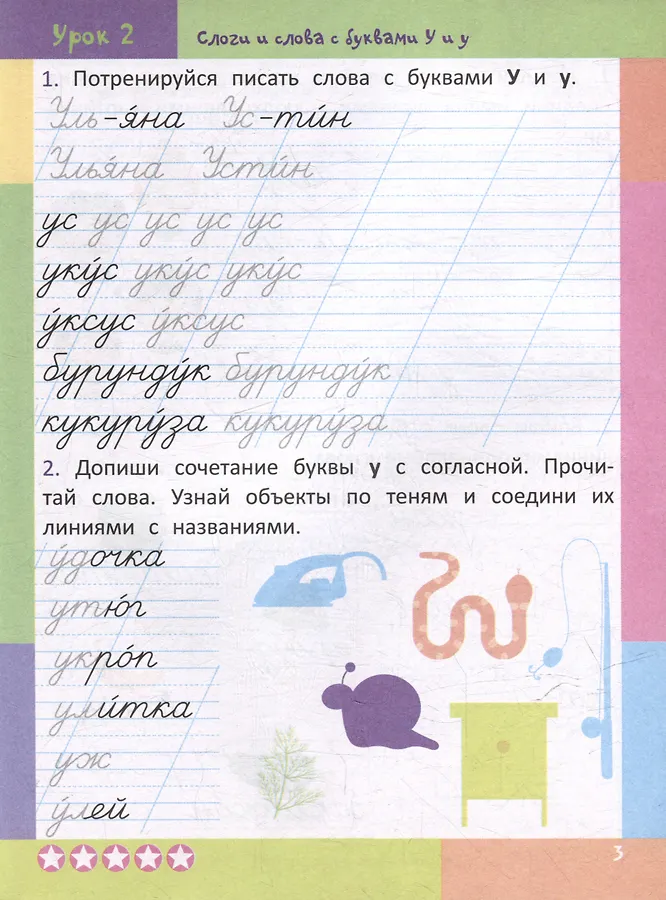 Урок 2
Слоги и слова с буквами У и у
1. Потренируйся писать слова с буквами У и у.
Уль-я́на Ус-ти́н
Улья́на Усти́н
ус ус ус ус ус
уку́с уку́с уку́с
у́ксус у́ксус
бурунду́к бурунду́к
кукуру́за кукуру́за
2. Допиши сочетание буквы у с согласной. Прочи-
тай слова. Узнай объекты по теням и соедини их
линиями с названиями.
у́дочка
утю́г
укро́п
ули́тка
уж
у́лей
3